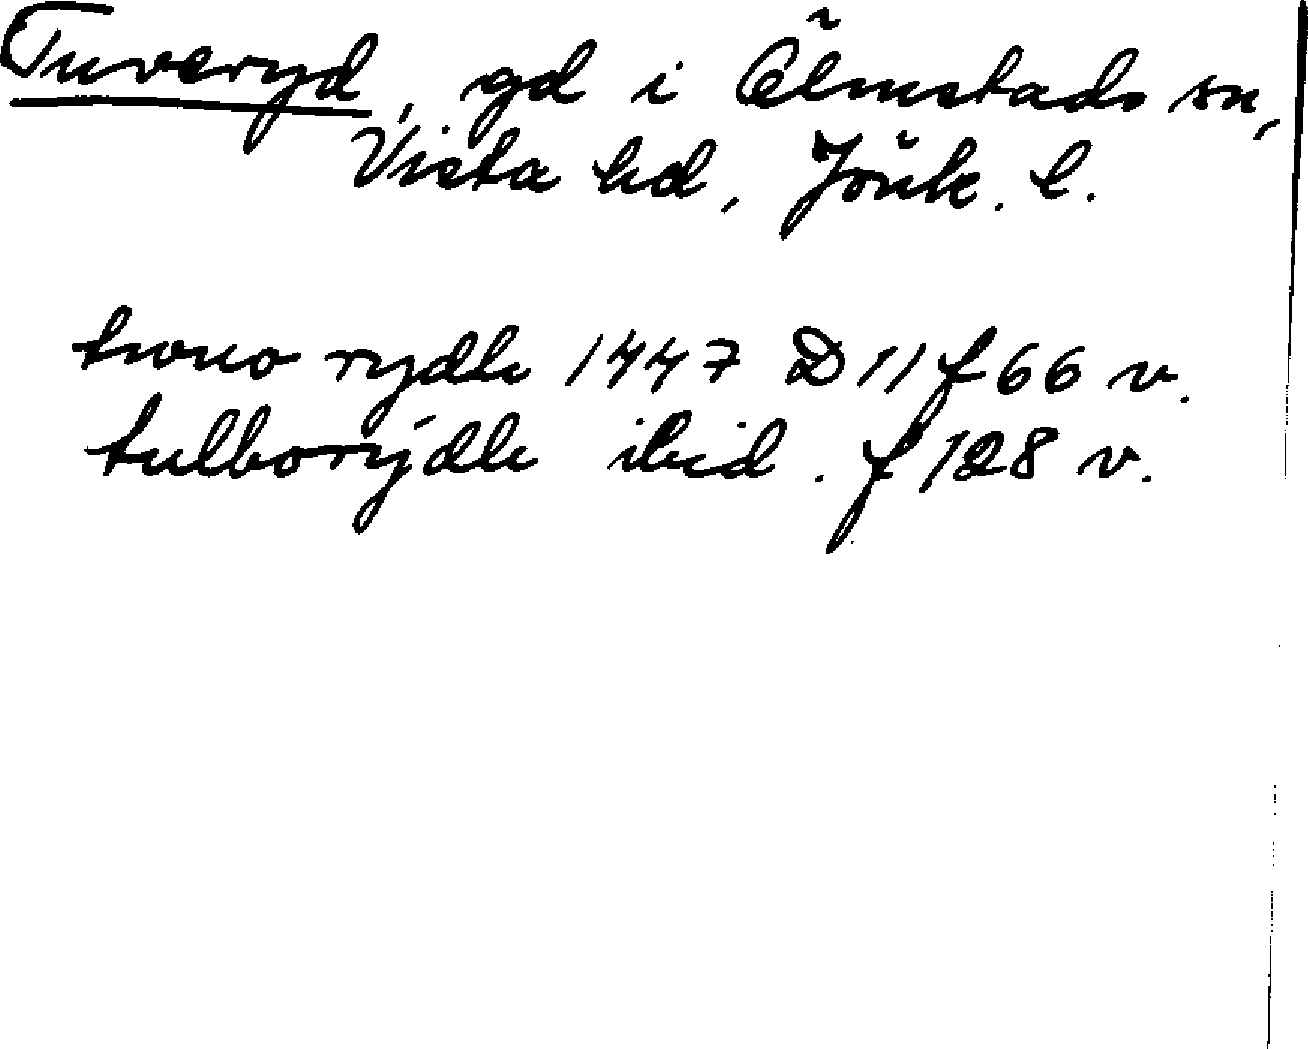 Tuveryd, gd i Ölmstads sn,
Vista hd, Jönk. l.
rydh 1447 D 11 f 66 v.
tulborydh ibid. f 128 v.